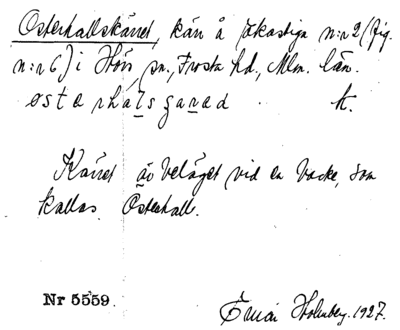 Osterhallskärret, kärr å Åkastiga n:r 2 (fig.
n:r 6) i Hörs sn., Frosta hd., Mlm. län.
østerhalsgaræd K.
Kärret är beläget vid en backe, som
kallas Osterhall.
Nr 5559.
Holmberg. 1927.